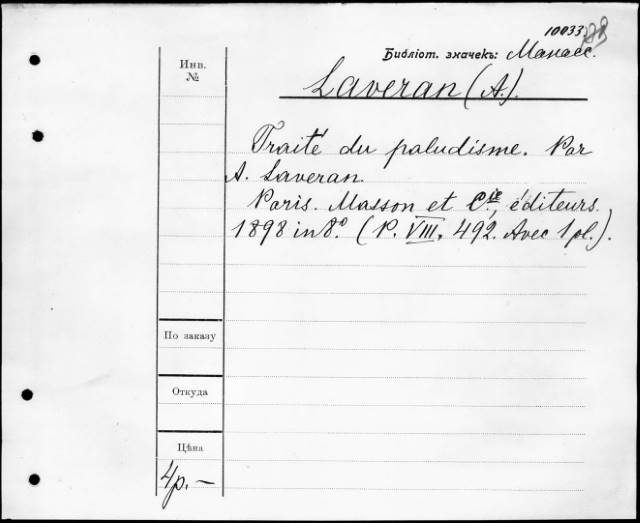 10033
Библіот. значекъ: Манасс.
Инв.
№
Laveran (A).
Traité du paludisme. Par
A. Laveran.
Paris. Masson et Cie, éditeurs.
1898 in 8º. (P. VIII, 492. Avec 1 pl.).
По заказу
Откуда
Цѣна
4р. —